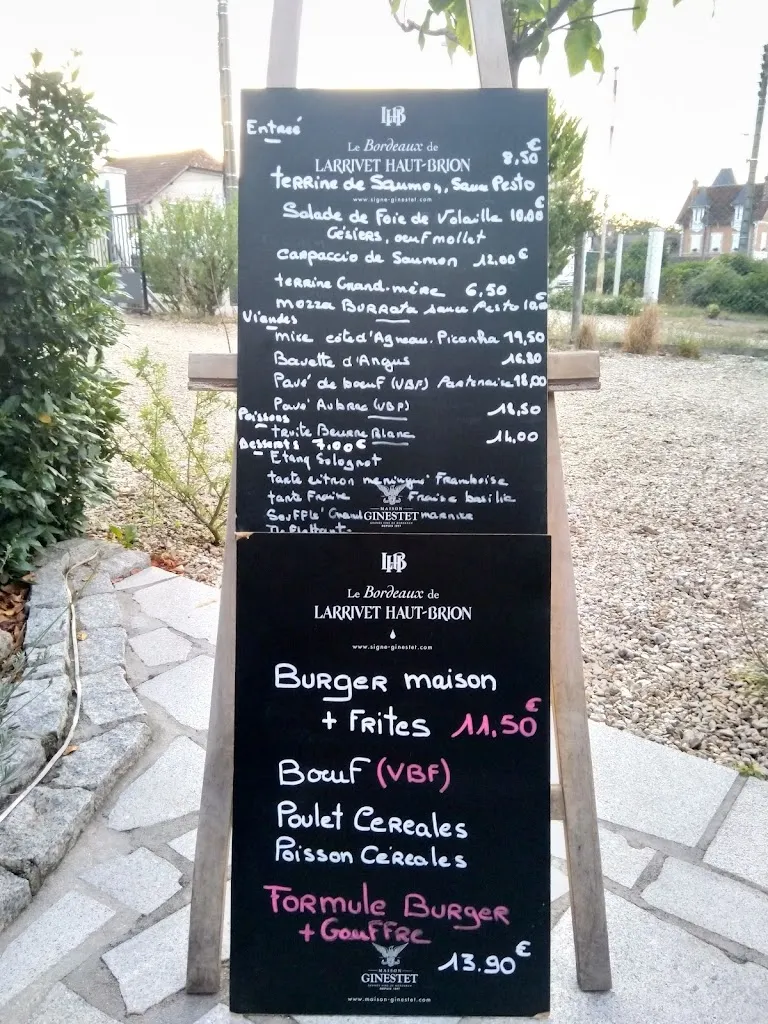 LHB
Entrée
Le Bordeaux de
LARRIVET HAUT-BRION
8,50€
terrine de Saumon, Sauce Pesto
www.signe-ginestet.com
Salade de Foie de Volaille 10.00
Gésiers, oeuf mollet
carpaccio de Saumon 12,00€
terrine Grand-mère 6,50
mozza Burrata sauce Pesto
Viandes
d'Agneau. Picanha 19,50
Bavette d'Angus 16.80
Pavé de boeuf (VBF) 18,00
Pavé Aubrac (VBF) 18,50
Poissons
truite Beurre Blanc 14,00
Desserts 7.00€
Etang Solognot
tarte citron meringué Framboise
tarte Fraise Fraise basilic
Soufflé Grand marnier
MAISON
GINESTET
LHB
Le Bordeaux de
LARRIVET HAUT-BRION
www.signe-ginestet.com
Burger maison
+ Frites 11,50€
Bœuf (VBF)
Poulet Cereales
Poisson Céréales
Formule Burger
+ Gauffre
13.90€
MAISON
GINESTET
www.maison-ginestet.com